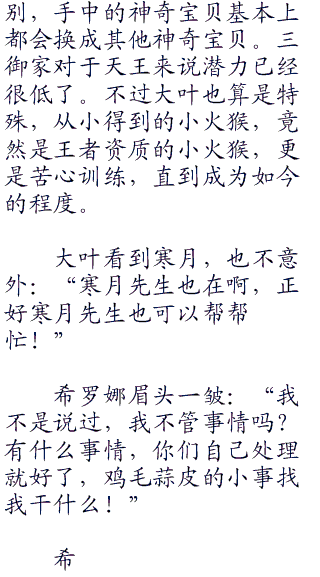 别，手中的神奇宝贝基本上
都会换成其他神奇宝贝。三
御家对于天王来说潜力已经
很低了。不过大叶也算是特
殊，从小得到的小火猴，竟
然是王者资质的小火猴，更
是苦心训练，直到成为如今
的程度。
大叶看到寒月，也不意
外：“寒月先生也在啊，正
好寒月先生也可以帮帮
忙！”
希罗娜眉头一皱：“我
不是说过，我不管事情吗？
有什么事情，你们自己处理
就好了，鸡毛蒜皮的小事找
我干什么！”
希